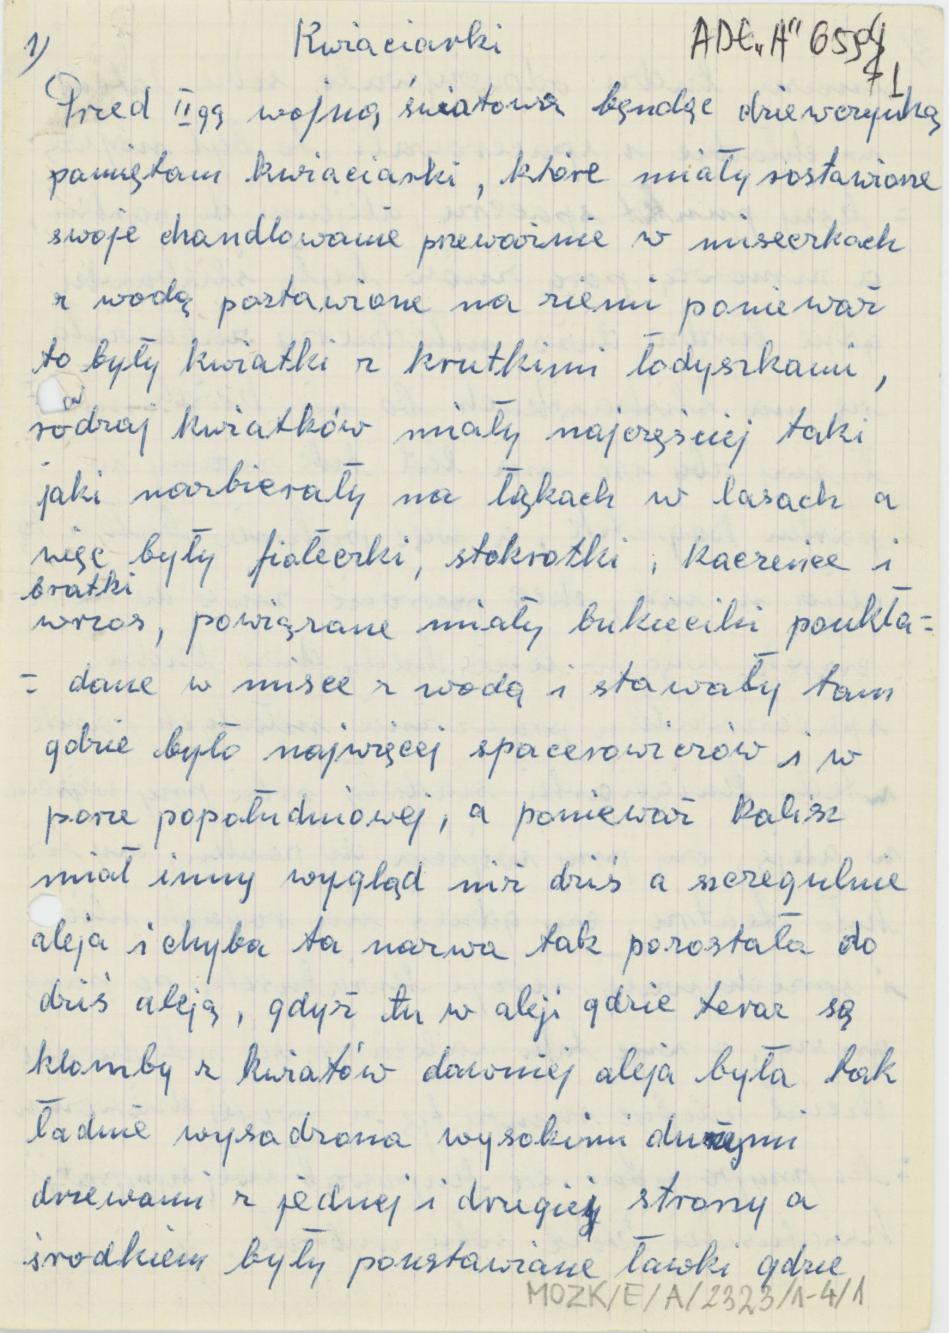 1) Kwiaciarki ADŁ „A" 659
71
Przed II gą wojną światową będąc dziewczynką
pamiętam kwiaciarki, które miały rostawione
swoje chandlowanie przeważnie w miseczkach
z wodą postawione na ziemi ponieważ
to były kwiatki z krutkimi łodyszkami,
rodzaj kwiatków miały najczęsciej taki
jaki nazbierały na łąkach w lasach a
więc były fiołeczki, stokrotki, kaczeńce i
bratki
wrzos, powiązane miały bukieciki poukła=
= dane w misce z wodą i stawały tam
gdzie było najwięcej spacerowiczów i w
porze popołudniowej, a ponieważ Kalisz
miał inny wygląd niż dziś a szczegulnie
aleja i chyba ta nazwa tak pozostała do
dziś aleją, gdyż tu w aleji gdzie teraz są
klomby z kwiatów dawniej aleja była tak
ładnie wysadzona wysokimi dużymi
drzewami z jednej i drugiej strony a
środkiem były poustawiane ławki gdzie
MOZK/E/A/2323/1-4/1